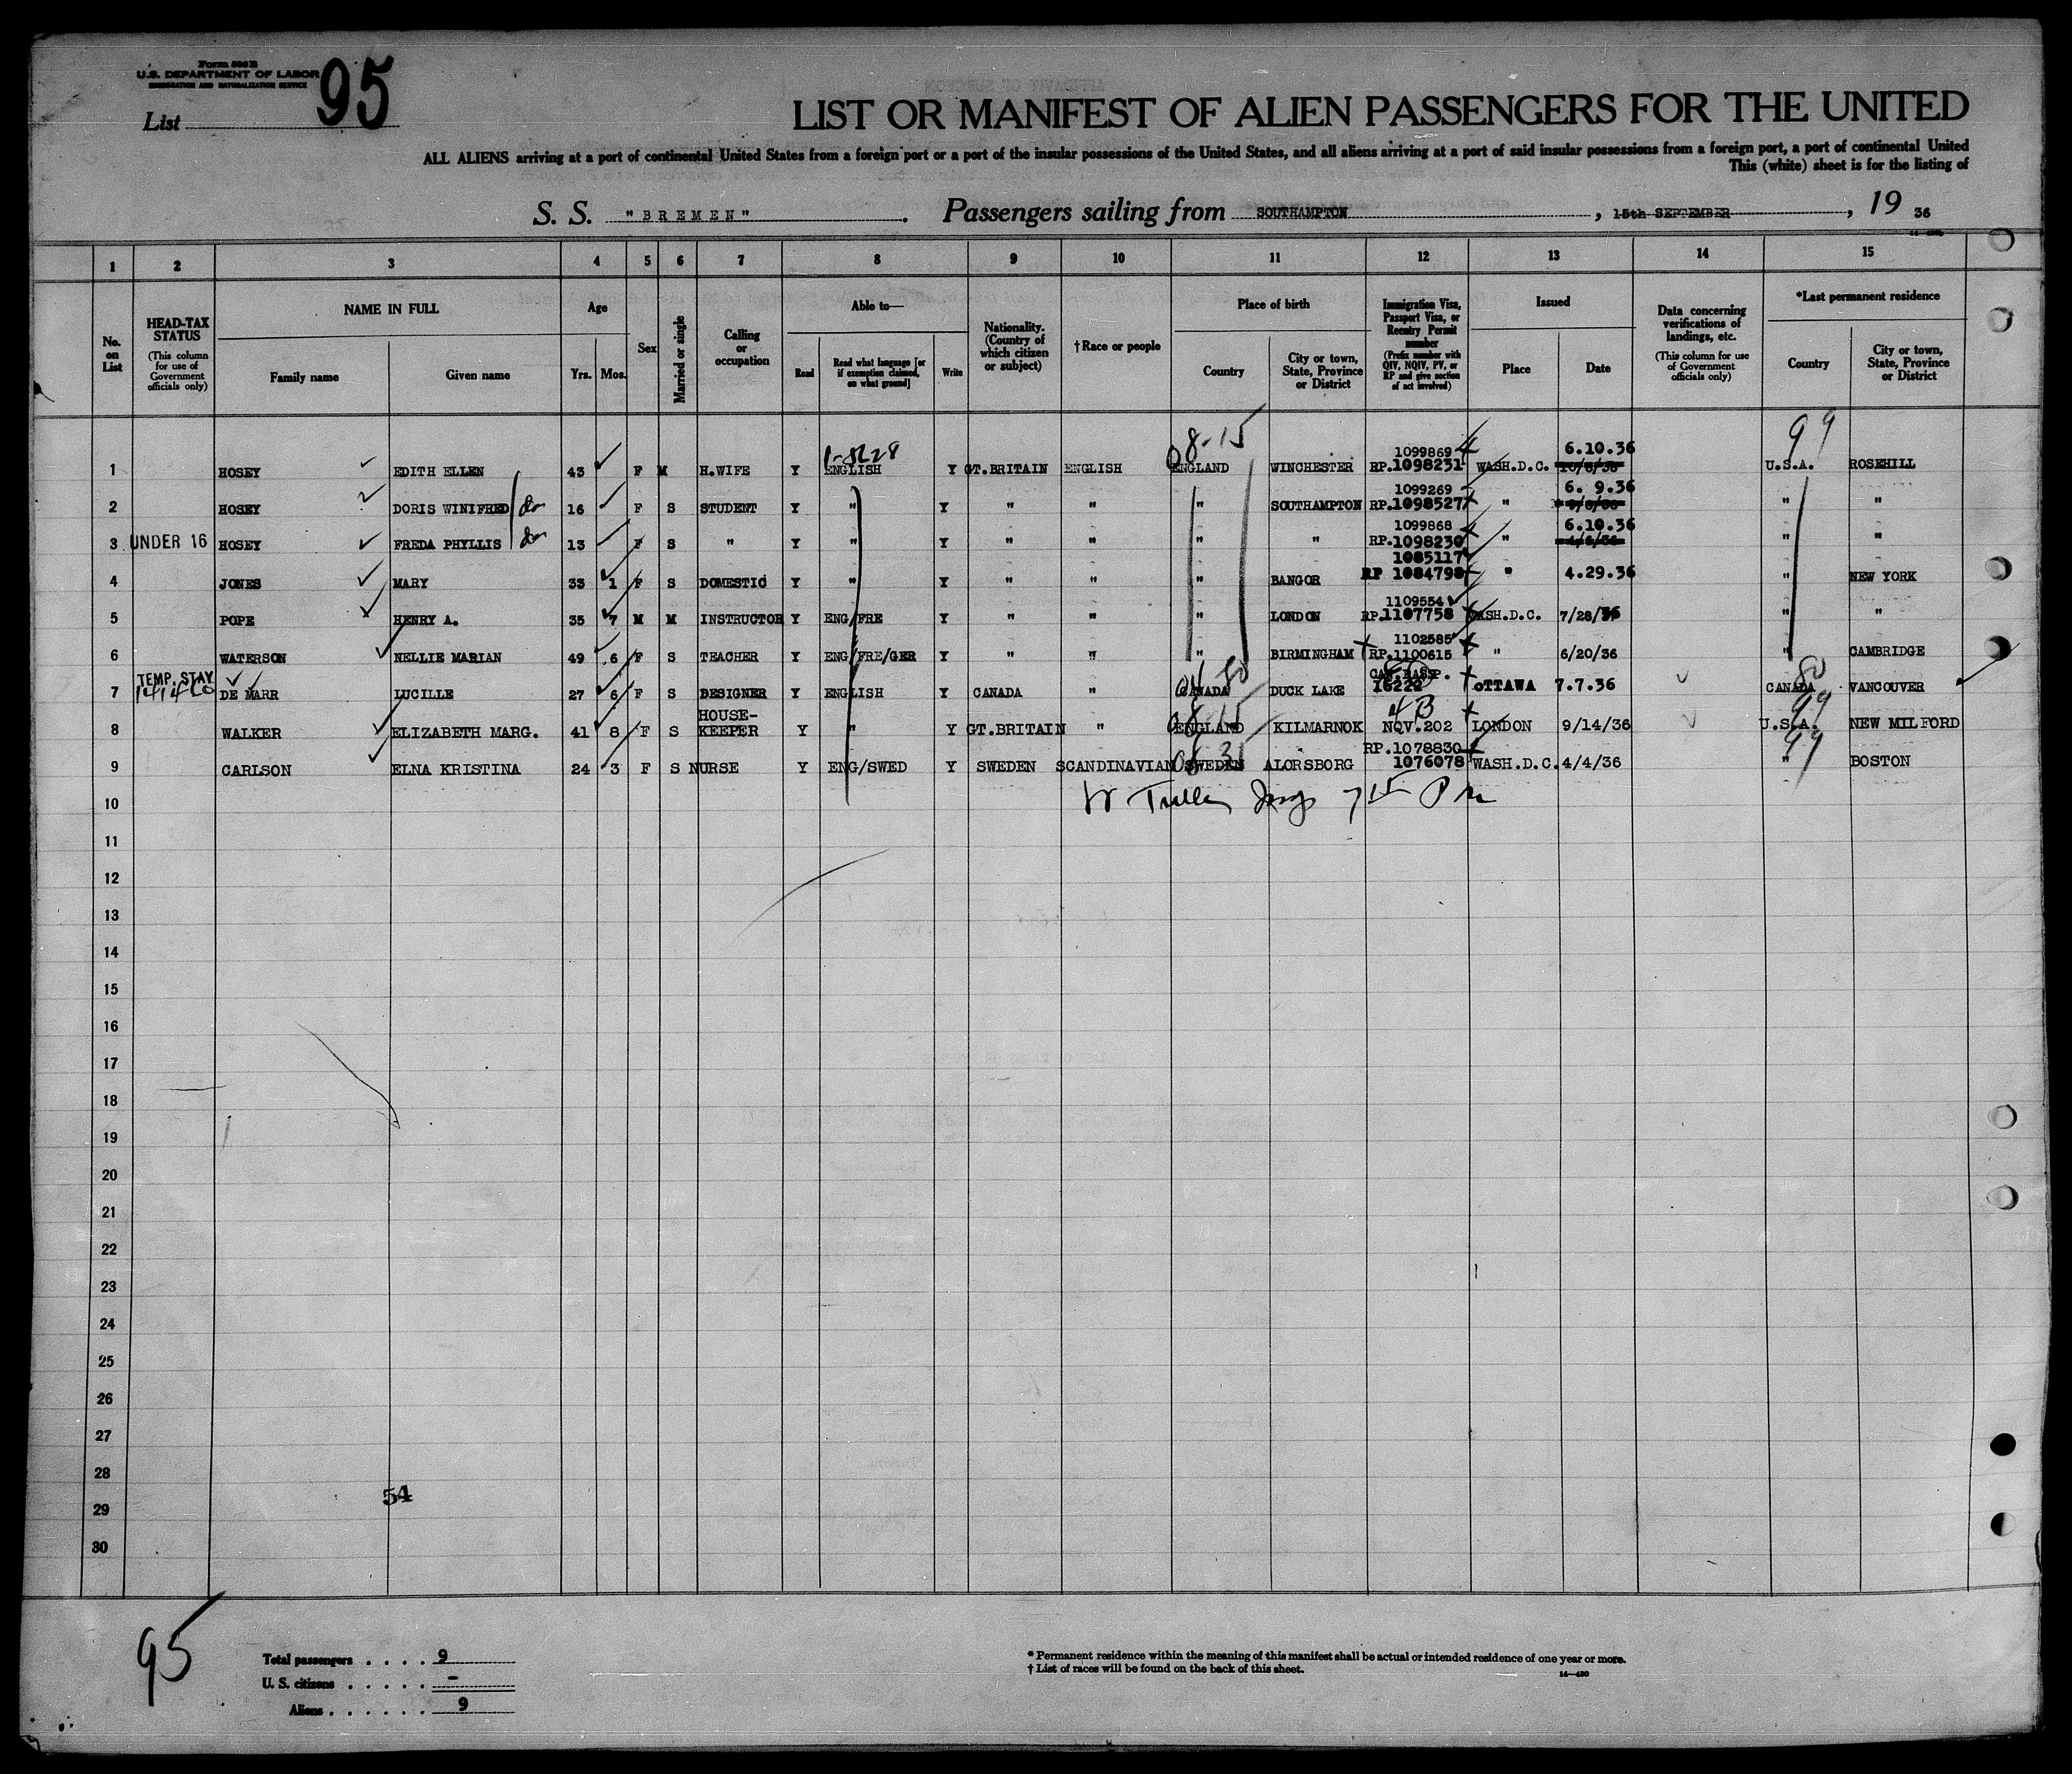 Form 500 B
U.S. DEPARTMENT OF LABOR
IMMIGRATION AND NATURALIZATION SERVICE
List 95
LIST OR MANIFEST OF ALIEN PASSENGERS FOR THE UNITED
ALL ALIENS arriving at a port of continental United States from a foreign port or a port of the insular possessions of the United States, and all aliens arriving at a port of said insular possessions from a foreign port, a port of continental United
This (white) sheet is for the listing of
S. S. "BREMEN". Passengers sailing from SOUTHAMPTON, 15th SEPTEMBER, 19 36
1 2 3 4 5 6 7 8 9 10 11 12 13 14 15
No. on List
HEAD-TAX STATUS (This column for use of Government officials only)
NAME IN FULL
Family name Given name
Age
Yrs. Mos.
Sex
Married or single
Calling or occupation
Able to—
Read Read what language [or if exemption claimed, on what ground] Write
Nationality. (Country of which citizen or subject)
†Race or people
Place of birth
Country City or town, State, Province or District
Immigration Visa, Passport Visa, or Reentry Permit number (Prefix number with QIV, NQIV, PV, or RP and give section of act involved)
Issued
Place Date
Data concerning verifications of landings, etc. (This column for use of Government officials only)
*Last permanent residence
Country City or town, State, Province or District
08-15 99
1099869 6.10.36
1 HOSEY EDITH ELLEN 43 F M H.WIFE Y ENGLISH Y GT.BRITAIN ENGLISH ENGLAND WINCHESTER RP.1098231 WASH.D.C. U.S.A. ROSEHILL
1099269 6. 9.36
2 HOSEY DORIS WINIFRED 16 F S STUDENT Y " Y " " " SOUTHAMPTON RP.1098527 " " "
1099868 6.10.36
3 UNDER 16 HOSEY FREDA PHYLLIS 13 F S " Y " Y " " " " RP.1098230 " " "
1085117
4 JONES MARY 33 1 F S DOMESTIC Y " Y " " " BANGOR RP 1084798 " 4.29.36 " NEW YORK
1109554
5 POPE HENRY A. 35 7 M M INSTRUCTOR Y ENG/FRE Y " " " LONDON RP.1107758 WASH.D.C. 7/28/36 " "
1102585
6 WATERSON NELLIE MARIAN 49 6 F S TEACHER Y ENG/FRE/GER Y " " " BIRMINGHAM RP.1100615 " 6/20/36 " CAMBRIDGE
TEMP. STAY CAN.PASSP.
7 DE MARR LUCILLE 27 6 F S DESIGNER Y ENGLISH Y CANADA " CANADA DUCK LAKE 16222 OTTAWA 7.7.36 CANADA VANCOUVER
HOUSE- 4B
8 WALKER ELIZABETH MARG. 41 8 F S KEEPER Y " Y GT.BRITAIN " ENGLAND KILMARNOK NQV.202 LONDON 9/14/36 U.S.A. NEW MILFORD
RP.1078830
9 CARLSON ELNA KRISTINA 24 3 F S NURSE Y ENG/SWED Y SWEDEN SCANDINAVIAN SWEDEN ALORSBORG 1076078 WASH.D.C. 4/4/36 " BOSTON
10
11
12
13
14
15
16
17
18
19
20
21
22
23
24
25
26
27
28
54
29
30
95
Total passengers . . . . 9
U. S. citizens . . . . . –
Aliens . . . . . . 9
* Permanent residence within the meaning of this manifest shall be actual or intended residence of one year or more.
† List of races will be found on the back of this sheet.
14—430